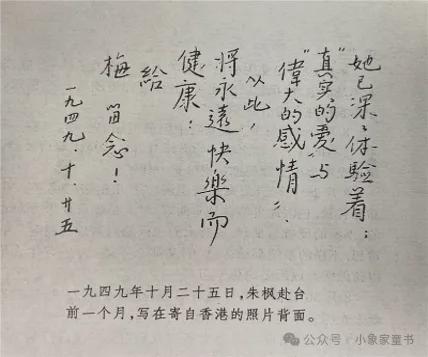 她已深深体驗着：
"真实的愛"与
"偉大的感情"、
以此，
将永遠快樂而
健康：
給
梅 留念！
一九四九.十.廿五
一九四九年十月二十五日，朱枫赴台
前一个月，写在寄自香港的照片背面。
公众号·小象家童书